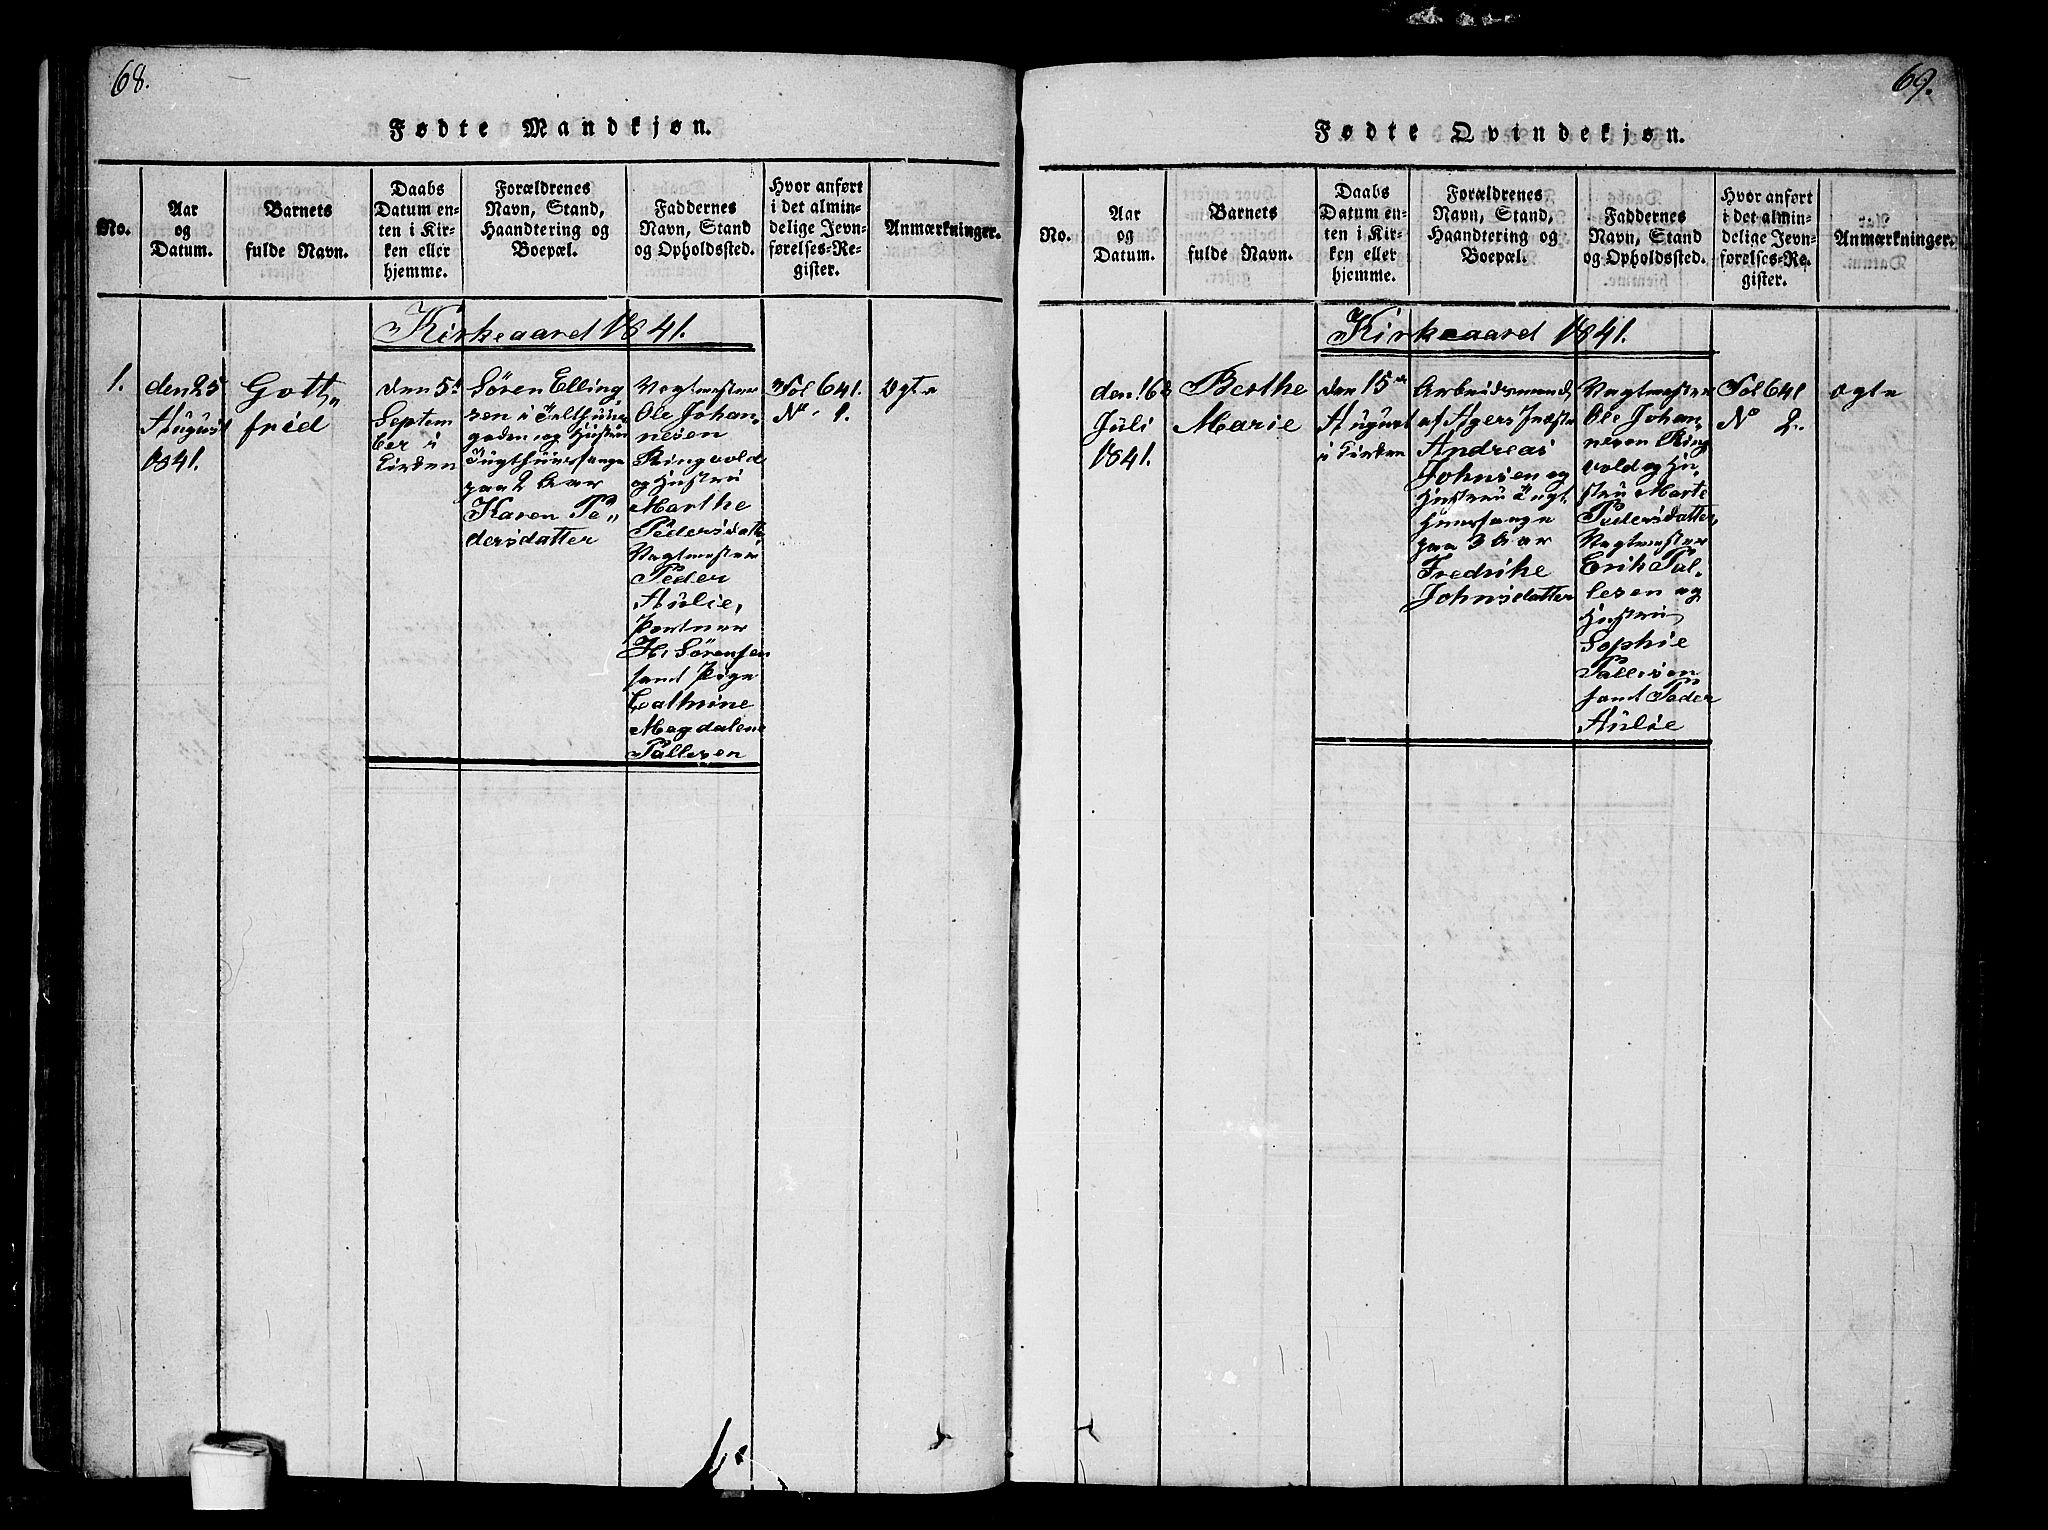 68.
Fødte Mandkjøn.
No.
Aar
og
Datum.
Barnets
fulde Navn.
Daabs
Datum en-
ten i Kir-
ken eller
hjemme.
Forældrenes
Navn, Stand,
Haandtering og
Boepæl.
Faddernes
Navn, Stand
og Opholdssted.
Hvor anført
i det almin-
delige Jevn-
førelses-Re-
gister.
Anmærkninger.
Kirkeaard 1841.
1.
den 25
August
1841.
Gott„
fried
den 5t
Septem
ber i
Kirken
Søren Elling
sen i
og Hustru
Tugthuusfange
paa 2 Aar
Karen Pe„
dersdatter
Vagtmester
Ole Johan„
nesen
Ringvold
og Hustru
Marthe
Pedersdatt
Vagtmester
Peder
Aulie,
Portner
H. Sørensen
samt Pige
Cathrine
Magdalene
Pallesen
Fol 641.
No 1.
Ogte
69.
Fødte Qvindekjøn.
No.
Aar
og
Datum.
Barnets
fulde Navn.
Daabs
Datum en-
ten i Kir-
ken eller
hjemme.
Forældrenes
Navn, Stand,
Haandtering og
Boepæl.
Faddernes
Navn, Stand
og Opholdssted.
Hvor anført
i det almin-
delige Jevn-
førelses-Re-
gister.
Anmærkninger.
Kirkeaard 1841.
den 16d
Juli
1841.
Berthe
Marie
den 15de
August
i Kirken
Arbeidsmand
af Agers
Andreas
Johnsen og
Hustru Tugt
huusfange
paa 3 Aar
Fredrike
Johnsdatter
Vagtmester
Ole Johan„
nesen Ring
vold og Hu„
stru Marte
Pedersdatter,
Vagtmester
Erik Pal„
lesen og
Hustru
Sophie
Pallesen
samt Peder
Aulie
Fol 641
No 2.
ogte